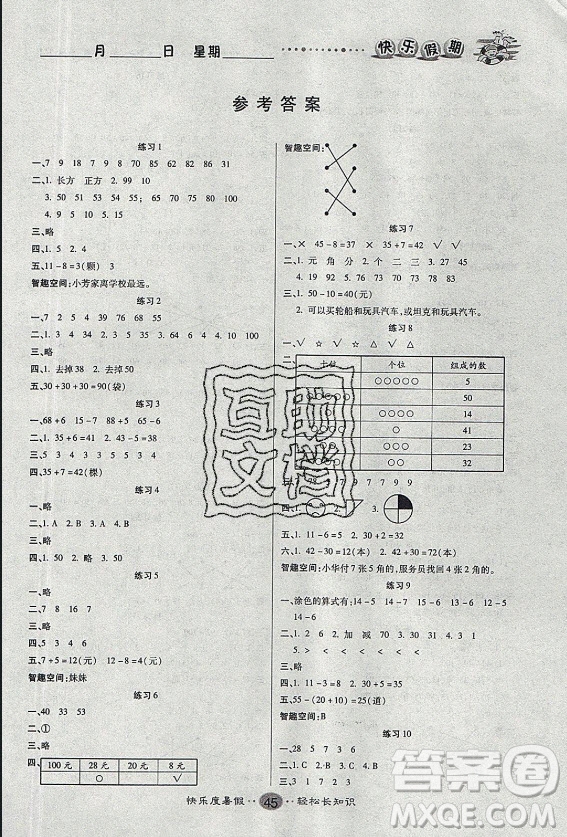 月 日 星期
快乐假期
参考答案
练习1
一、7 9 18 7 9 8 70 85 62 82 86 31
二、1. 长方 正方 2. 99 10
3. 50 51 53 54 55 56 57
58 60 61 62 64 65 66 67
三、略
四、1. 5 2. 4
五、11-8=3(颗) 3
智趣空间:小芳家离学校最远。
练习2
二、1. 1 3 4 10 2. 100 6 7 4
三、略
四、1. 去掉30 2. 去掉50
五、30+30+30=90(袋)
练习3
一、68+6 15-9 88+6 65-5
二、1. 35+6=41 2. 略
三、略
四、35+7=42(棵)
练习4
二、1. A 2. A 3. A
三、略
四、50 2. 略
练习5
一、略
二、7 8 16 7
三、略
四、5 3 4 6
五、7+5=12(元) 12-8=4(元)
智趣空间:妹妹
练习6
一、40 33 53
二、①
三、略
四、
100元 28元 20元 8元
○ √
智趣空间:
练习7
一、× 45-8=37 × 35+7=42 √ √
二、1. 元 角 分 2. 个 十 二 3. 27
4. 19 92 5. 76
三、1. 50-10=40(元)
2. 可以买轮船和玩具汽车,或坦克和玩具汽车。
练习8
一、√ ☆ √ √ ☆ ☆
二、
十位 个位 组成的数
○○○○○ 5
50
○○○○ 14
○ 41
○○○ 23
○○ 32
7 8 7 7 9 9
四、1. 2. 3.
五、1. 11-6=5 2. 30+2=32
六、1. 42-30=12(本) 2. 42-10=32(本)
智趣空间:小华付7张5角的,服务员找回4张2角的。
练习9
一、涂色的算式有:14-5 14-7 13-5 13-6
14-6
二、1. 2 0 2. 加 减 70 3. 30
5. > < < < < >
三、略
四、1. 35-4=31 2. 9+30=39
五、1. 20+40=60 2. 40-15=25(道)
智趣空间:B
练习10
一、81 90 91 9 9 7
二、1. 8 2. 9
三、1 3 7 2 4 8
快乐度暑假··45··轻松长知识
互助文档
答案圈
MXQE.COM